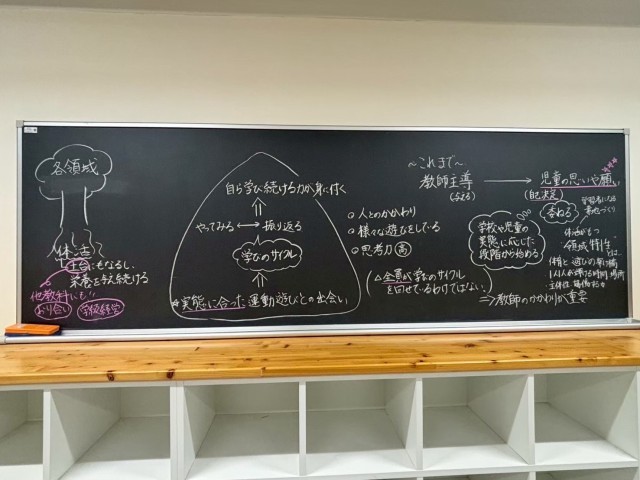 各領域
体活
土台にもなるし、
栄養を与え続ける
他教科にも!!
おり合い 学級経営
自ら学び続ける力が身に付く
やってみる ↔ 振り返る
学びのサイクル
★実態に合った運動遊びとの出会い
○人とのかかわり
○様々な遊びをしている
○思考力高
△全員が学びのサイクル
を回せているわけではない。
〜これまで〜
教師主導 → 児童の思いや願い
(与える) (自己決定)
委ねる
学習者になる
学校や児童の
実態に応じた
段階から始める
⇒教師のかかわりが重要
体活がもつ
領域特性
とは…
体育と遊びの
場所
主体性